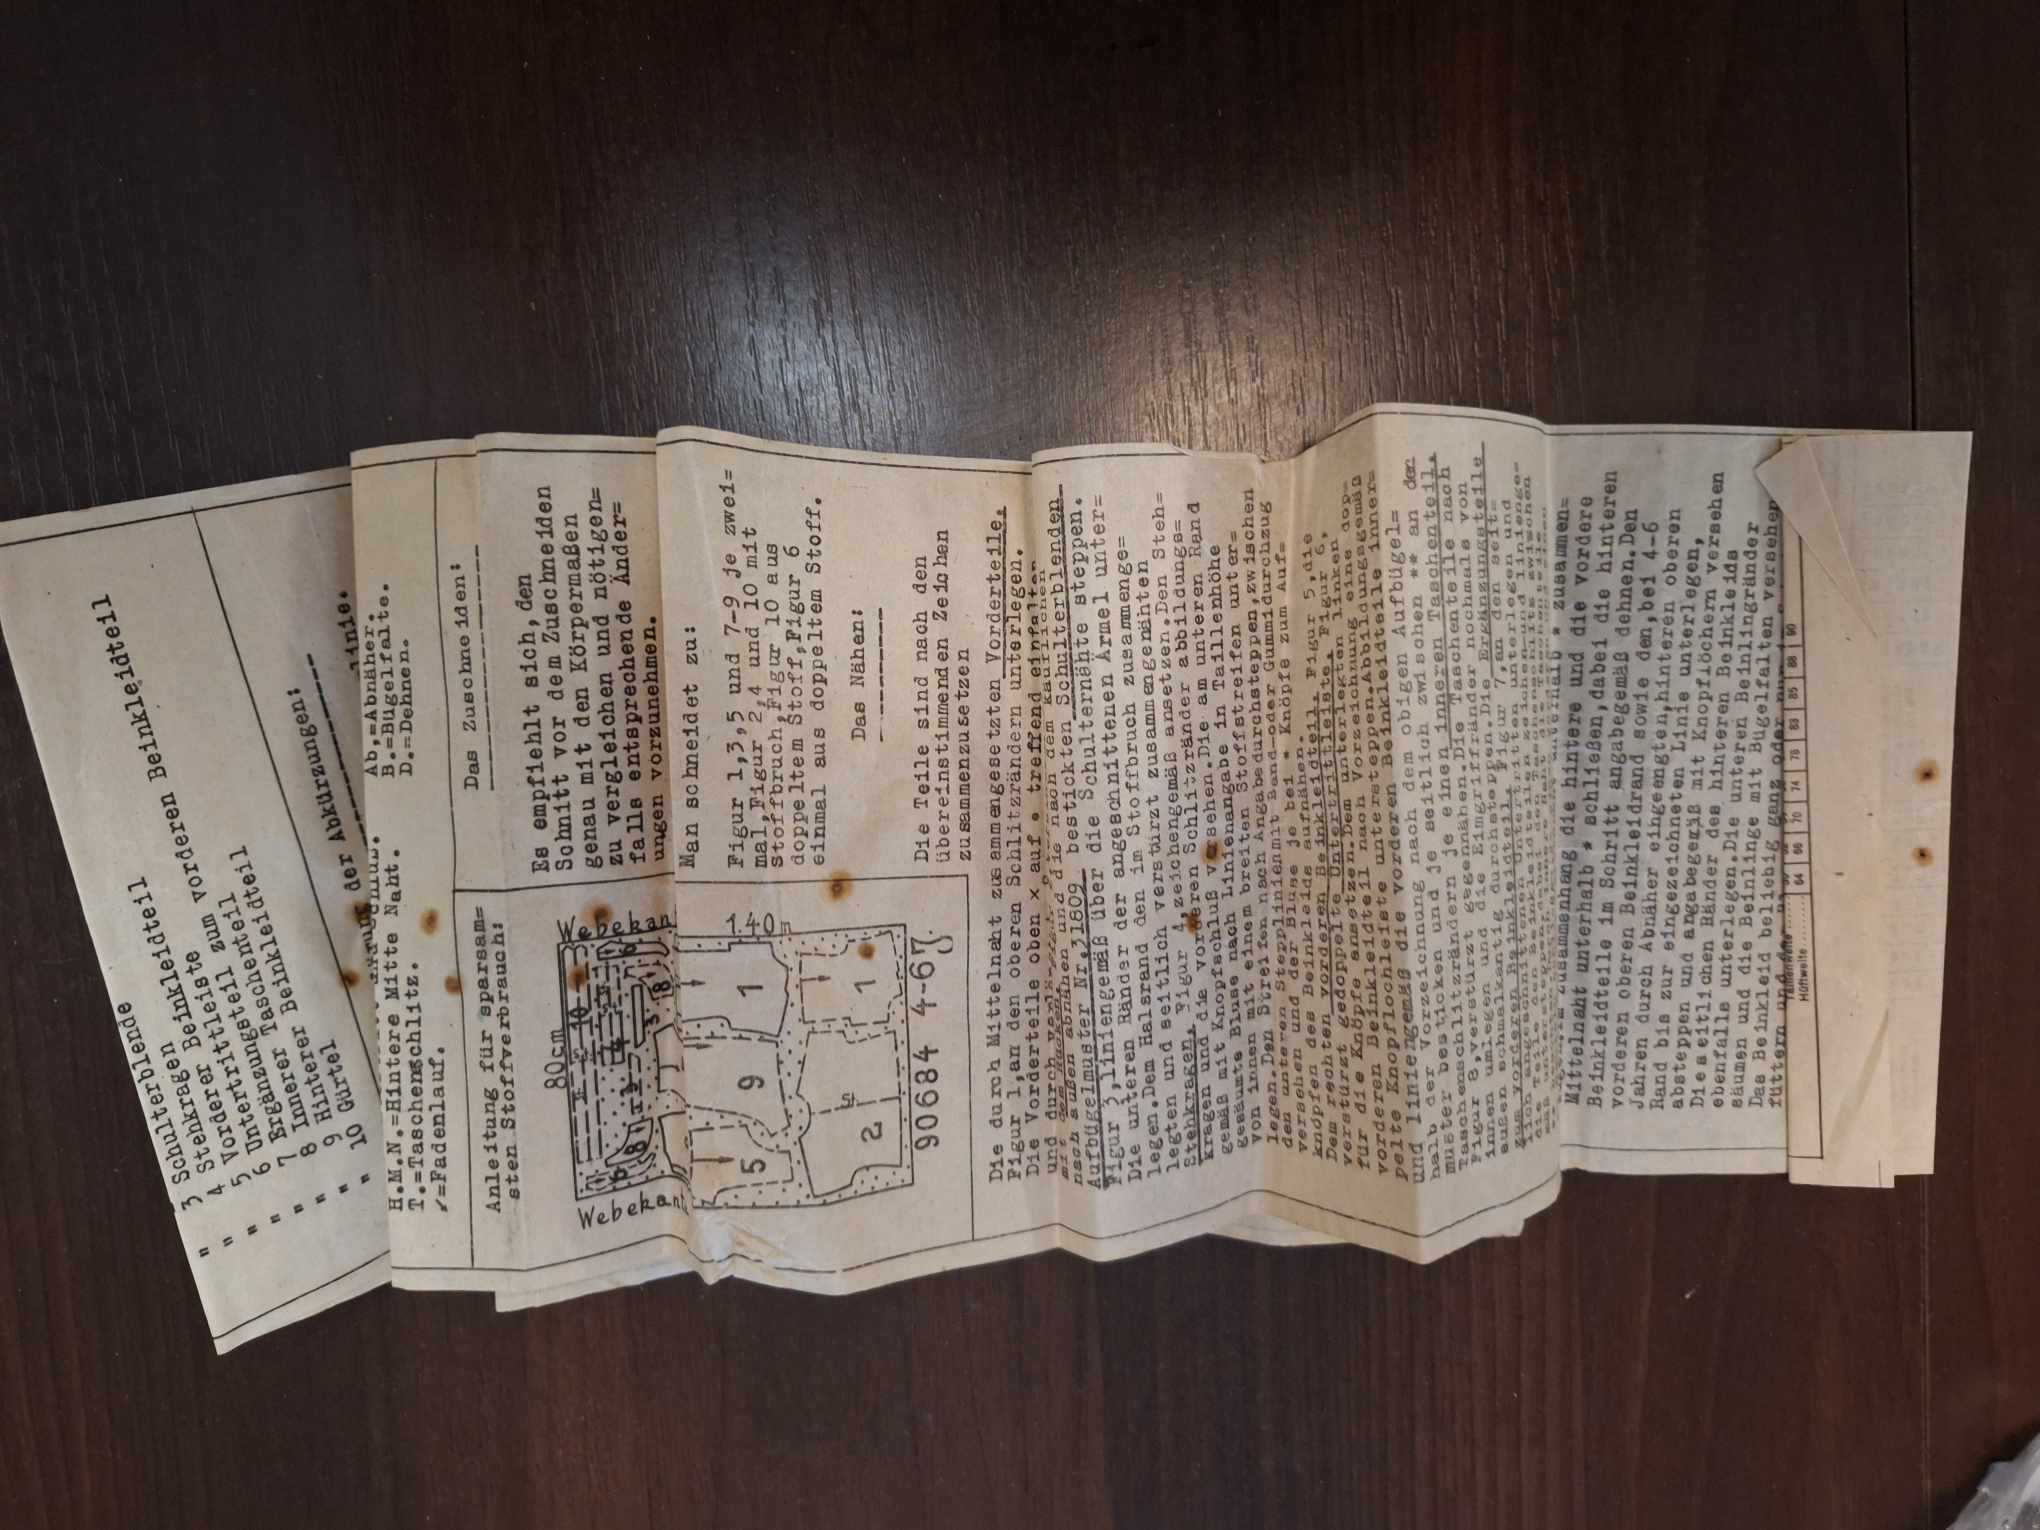 " 3 Schulterblende
" 4 Stehkragen Beinkleidteil
" 5 Vorderer Beinkleidteil
" 6 Untertrittleiste zum vorderen Beinkleidteil
" 7 Ergänzungstenteil
" 8 Innerer Taschenteil
" 9 Hinterer Beinkleidteil
" 10 Gürtel
der Abkürzungen:
linie.
H.M.N.=Hintere Mitte Naht.
T.=Taschenschlitz.
↙=Fadenlauf.
Ab,=Abnäher.
B.=Bügelfalte.
D.=Dehnen.
Anleitung für sparsam=
sten Stoffverbrauch:
80cm
Webekan
Webekan
1.40
10
8
1
9
5
1
2
90684 4-6J.
Das Zuschneiden:
Es empfiehlt sich, den
Schnitt vor dem Zuschneiden
genau mit den Körpermaßen
zu vergleichen und nötigen=
falls entsprechende Änder=
ungen vorzunehmen.
Man schneidet zu:
Figur 1,3,5 und 7-9 je zwei=
mal,Figur 2,4 und 10 mit
Stoffbruch,Figur 10 aus
doppeltem Stoff,Figur 6
einmal aus doppeltem Stoff.
Das Nähen:
Die Teile sind nach den
übereinstimmenden Zeichen
zusammenzusetzen
Die durch Mittelnaht zusammengesetzten Vorderteile,
Figur 1,an den oberen Schlitzrändern unterlegen.
Die Vorderteile oben × auf • treffend einfalten
und durch die nach dem käuflichen
nach außen abnähen und die
Aufbügelmuster Nr.31809 bestickten Schulterblenden
Figur 3,liniengemäß über die Schulternähte steppen.
Die unteren Ränder der angeschnittenen Ärmel unter=
legen.Dem Halsrand den im Stoffbruch zusammenge=
legten und seitlich verstürzt zusammengenähten
Stehkragen,Figur 4,zeichengemäß ansetzen.Den Steh=
kragen und die vorderen Schlitzränder abbildungs=
gemäß mit Knopfschluß versehen.Die am unteren Rand
gesäumte Bluse nach Linienangabe in Taillenhöhe
von innen mit einem breiten Stoffstreifen unter=
legen.Den Streifen nach Angabe durchsteppen,zwischen
den unteren Stepplinien mit Band-oder Gummidurchzug
versehen und der Bluse je bei * Knöpfe zum Auf=
knöpfen des Beinkleids aufnähen.
Dem rechten vorderen Beinkleidteil,Figur 5,die
verstürzt gedoppelte Untertrittleiste,Figur 6,
für die Knöpfe ansetzen.Dem unterlegten linken
vorderen Beinkleidteil nach Vorzeichnung eine dop=
pelte Knopflochleiste untersteppen.Abbildungsgemäß
und liniengemäß die vorderen Beinkleidteile inner=
halb der Vorzeichnung nach dem obigen Aufbügel=
muster besticken und je seitlich zwischen ** an den
Taschenschlitzrändern je einen inneren Taschenteil,
Figur 8,verstürzt gegennähen.Die Taschenteile nach
innen umlegen und die Eingriffränder nochmals von
außen schmalkantig durchsteppen.Die Ergänzungsteile
zum vorderen Beinkleidteil,Figur 7,an den seit=
lich angeschnittenen Untertritten unterlegen und
Mittelnaht unterhalb * zusammen=
Beinkleidteile im Zusammenhang die hintere und die vordere
schließen,dabei die hinteren
Beinkleidteile im Schritt angabegemäß dehnen.Den
vorderen oberen Beinkleidrand sowie den,bei 4-6
Jahren durch Abnäher eingeengten,hinteren oberen
Rand bis zur eingezeichneten Linie unterlegen,
absteppen und angabegemäß mit Knopflöchern versehen
Die seitlichen Ränder des hinteren Beinkleids
ebenfalls unterlegen.Die unteren Beinlingränder
säumen und die Beinlinge mit Bügelfalten versehen
Das Beinkleid beliebig ganz oder
füttern und
Hüftweite
64 66 70 74 78 83 85 88 90